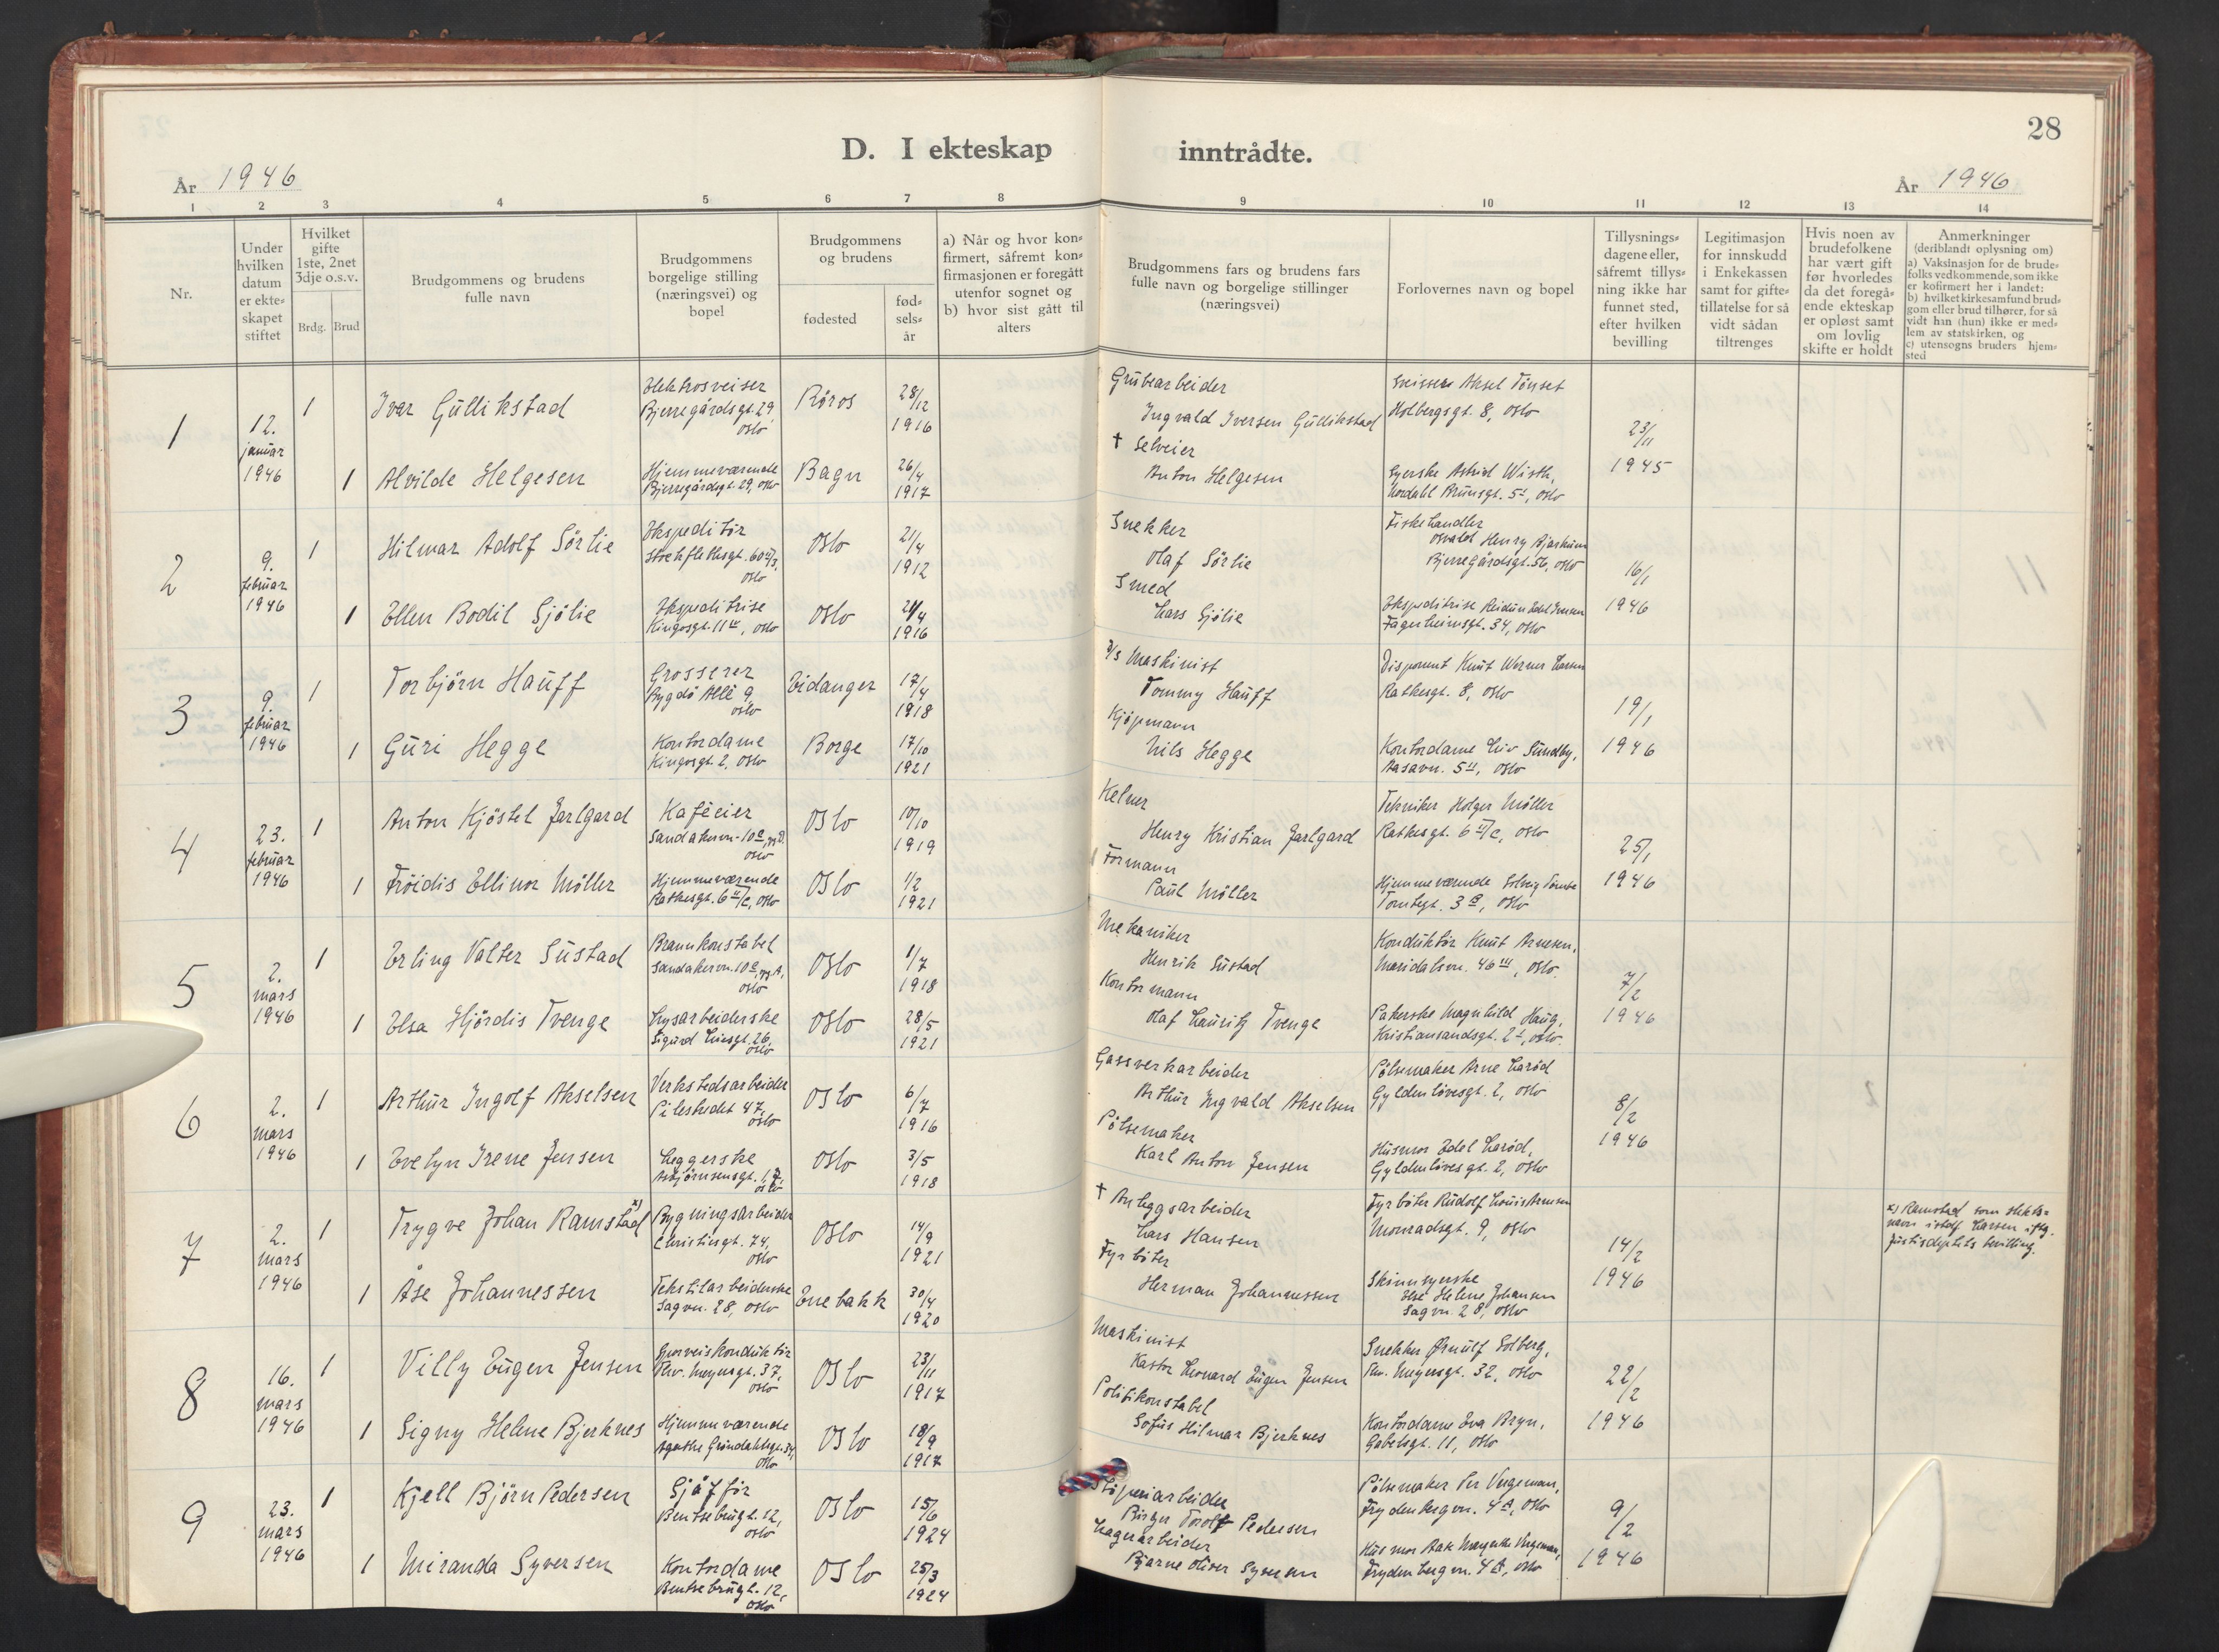 28
D. I ekteskap inntrådte.
År 1946
År 1946
1 2 3 4 5 6 7 8 9 10 11 12 13 14
Nr.
Under hvilken datum er ekte= skapet stiftet
Hvilket gifte 1ste, 2net 3dje o.s.v.
Brdg. Brud
Brudgommens og brudens fulle navn
Brudgommens borgelige stilling (næringsvei) og bopel
Brudgommens og brudens
fødested
fød= sels= år
a) Når og hvor kon= firmert, såfremt kon= firmasjonen er foregått utenfor sognet og
b) hvor sist gått til alters
Brudgommens fars og brudens fars fulle navn og borgelige stillinger (næringsvei)
Forlovernes navn og bopel
Tillysnings= dagene eller, såfremt tillys= ning ikke har funnet sted, efter hvilken bevilling
Legitimasjon for innskudd i Enkekassen samt for gifte= tillatelse for så vidt sådan tiltrenges
Hvis noen av brudefolkene har vært gift før hvorledes da det foregå= ende ekteskap er opløst samt om lovlig skifte er holdt
Anmerkninger
(deriblandt oplysning om)
a) Vaksinasjon for de brude= folks vedkommende, som ikke er kofirmert her i landet:
b) hvilket kirkesamfund brud= gom eller brud tilhører, for så vidt han (hun) ikke er med= lem av statskirken, og
c) utensogns bruders hjem= sted
1
12. januar 1946
1
Ivar Gullikstad
Elektrosveiser
Bjerregårdsgt. 29,
Oslo
Røros
28/12 1916
Grubearbeider
Ingvald Iversen Gullikstad
Aksel Tønset
Holbergsgt. 8, Oslo
23/11 1945
1
Alvilde Helgesen
Hjemmeværende
Bjerregårdsgt. 29, Oslo
Bagn
26/4 1917
† Selveier
Anton Helgesen
Syerske Astrid Wisth,
Nordahl Brunsgt. 5, Oslo
2
9. februar 1946
1
Hilmar Adolf Sørlie
Ekspeditør
Stockflethsgt. 60
Oslo
Oslo
21/4 1912
Snekker
Olaf Sørlie
Fiskehandler
Osvald Henry
Bjerregårdsgt. 56, Oslo
16/1 1946
1
Ellen Bodil Sjølie
Ekspeditrise
Kingosgt. 11, Oslo
Oslo
1916
Smed
Lars Sjølie
Ekspeditrise Reidun
Fagerheimsgt. 34, Oslo
3
9. februar 1946
1
Torbjørn Hauff
Grosserer
Bygdø Allé 9,
Oslo
Eidanger
17/4 1918
Maskinist
Tommy Hauff
Disponent Knut Werner Larsen
Rathesgt. 8, Oslo
19/1 1946
1
Guri Hegge
Kontordame
Kingosgt. 2, Oslo
Borge
17/10 1921
Kjøpmann
Nils Hegge
Kontordame Liv Sundby,
Aasavn. 5, Oslo
4
23. februar 1946
1
Anton Kjøstel Jarlgard
Kaféeier
Sandakervn. 10
Oslo
Oslo
10/10 1919
Kelner
Henry Kristian Jarlgard
Tekniker Holger Møller
Rathesgt. 6 II/c, Oslo
25/1 1946
1
Frøidis Ellinor Møller
Hjemmeværende
Rathesgt. 6 II/c, Oslo
Oslo
1/2 1921
Formann
Paul Møller
Hjemmeværende Solveig
Tomtegt. 3, Oslo
5
2. mars 1946
1
Erling Valter Sustad
Brannkonstabel
Sandakervn. 10
Oslo
Oslo
1/7 1918
Mekaniker
Henrik Sustad
Konduktør Knut Arnesen,
Maridalsvn. 46 III, Oslo.
7/2 1946
1
Elsa Hjørdis Tvenge
Lysarbeiderske
26,
Oslo
Oslo
28/5 1921
Kontormann
Olaf Lauritz Tvenge
Pakerske Magnhild Haug,
Kristiansandsgt. 2, Oslo.
6
2. mars 1946
1
Arthur Ingolf Akselsen
Verkstedsarbeider
Pilestredet 47,
Oslo
Oslo
6/7 1916
Gassverkarbeider
Arthur Ingvald Akselsen
Pølsemaker Arne Larød
Gyldenløvesgt. 2, Oslo
8/2 1946
1
Evelyn Irene Jensen
Leggerske
Asbjørnsensgt.
Oslo
Oslo
3/5 1918
Pølsemaker
Karl Anton Jensen
Husmor Edel Larød,
Gyldenløvesgt. 2, Oslo
7
2. mars 1946
1
Trygve Johan Ramstad x)
Bygningsarbeider
Christiesgt. 74,
Oslo
Oslo
14/9 1921
† Anleggsarbeider
Lars Hansen
Fyrbøter Rudolf Louis Arnesen
Monradsgt. 9, Oslo
14/2 1946
x) Ramstad som slekts= navn istdf. Larsen iflg. Justisdeptets bevilling.
1
Åse Johannessen
Tekstilarbeiderske
Sagvn. 28, Oslo
Enebakk
30/4 1920
Fyrbøter
Herman Johannessen
Skinnsyerske
Else Helene Johansen
Sagvn. 28, Oslo
8
16. mars 1946
1
Villy Eugen Jensen
Sporveiskonduktør
Thv. Meyersgt. 37,
Oslo
Oslo
23/11 1917
Maskinist
Kastor Leonard Eugen Jensen
Snekker Ørnulf Solberg,
Thv. Meyersgt. 32, Oslo
22/2 1946
1
Signy Helene Bjerknes
Hjemmeværende
Agathe Grøndahlsgt. 34,
Oslo
Oslo
18/9 1917
Politikonstabel
Sofus Hilmar Bjerknes
Kontordame Eva Bryn,
Gabelsgt. 11, Oslo
9
23. mars 1946
1
Kjell Bjørn Pedersen
Sjåffør
Bentsebrugt. 12,
Oslo
Oslo
15/6 1924
Støperiarbeider
Birger Torolf Pedersen
Pølsemaker Per Vegeman,
Frydenbergvn. 4 A, Oslo
9/2 1946
1
Miranda Syversen
Kontordame
Bentsebrugt. 12,
Oslo
Oslo
25/3 1924
Lagerarbeider
Bjarne Oliver Syversen
Husmor Aase
Frydenbergvn. 4 A, Oslo